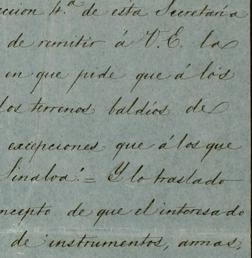 eccion 4.ª de esta Secretaría
de remitir á V. E. la
en que pide que á los
los terrenos baldios de
excepciones que á los que
Sinaloa. = Y lo traslado
ncepto de que el interesado
de instrumentos, armas,